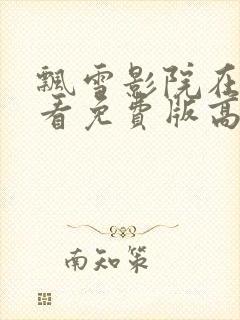 飘雪影院在
看免費版高
南知策